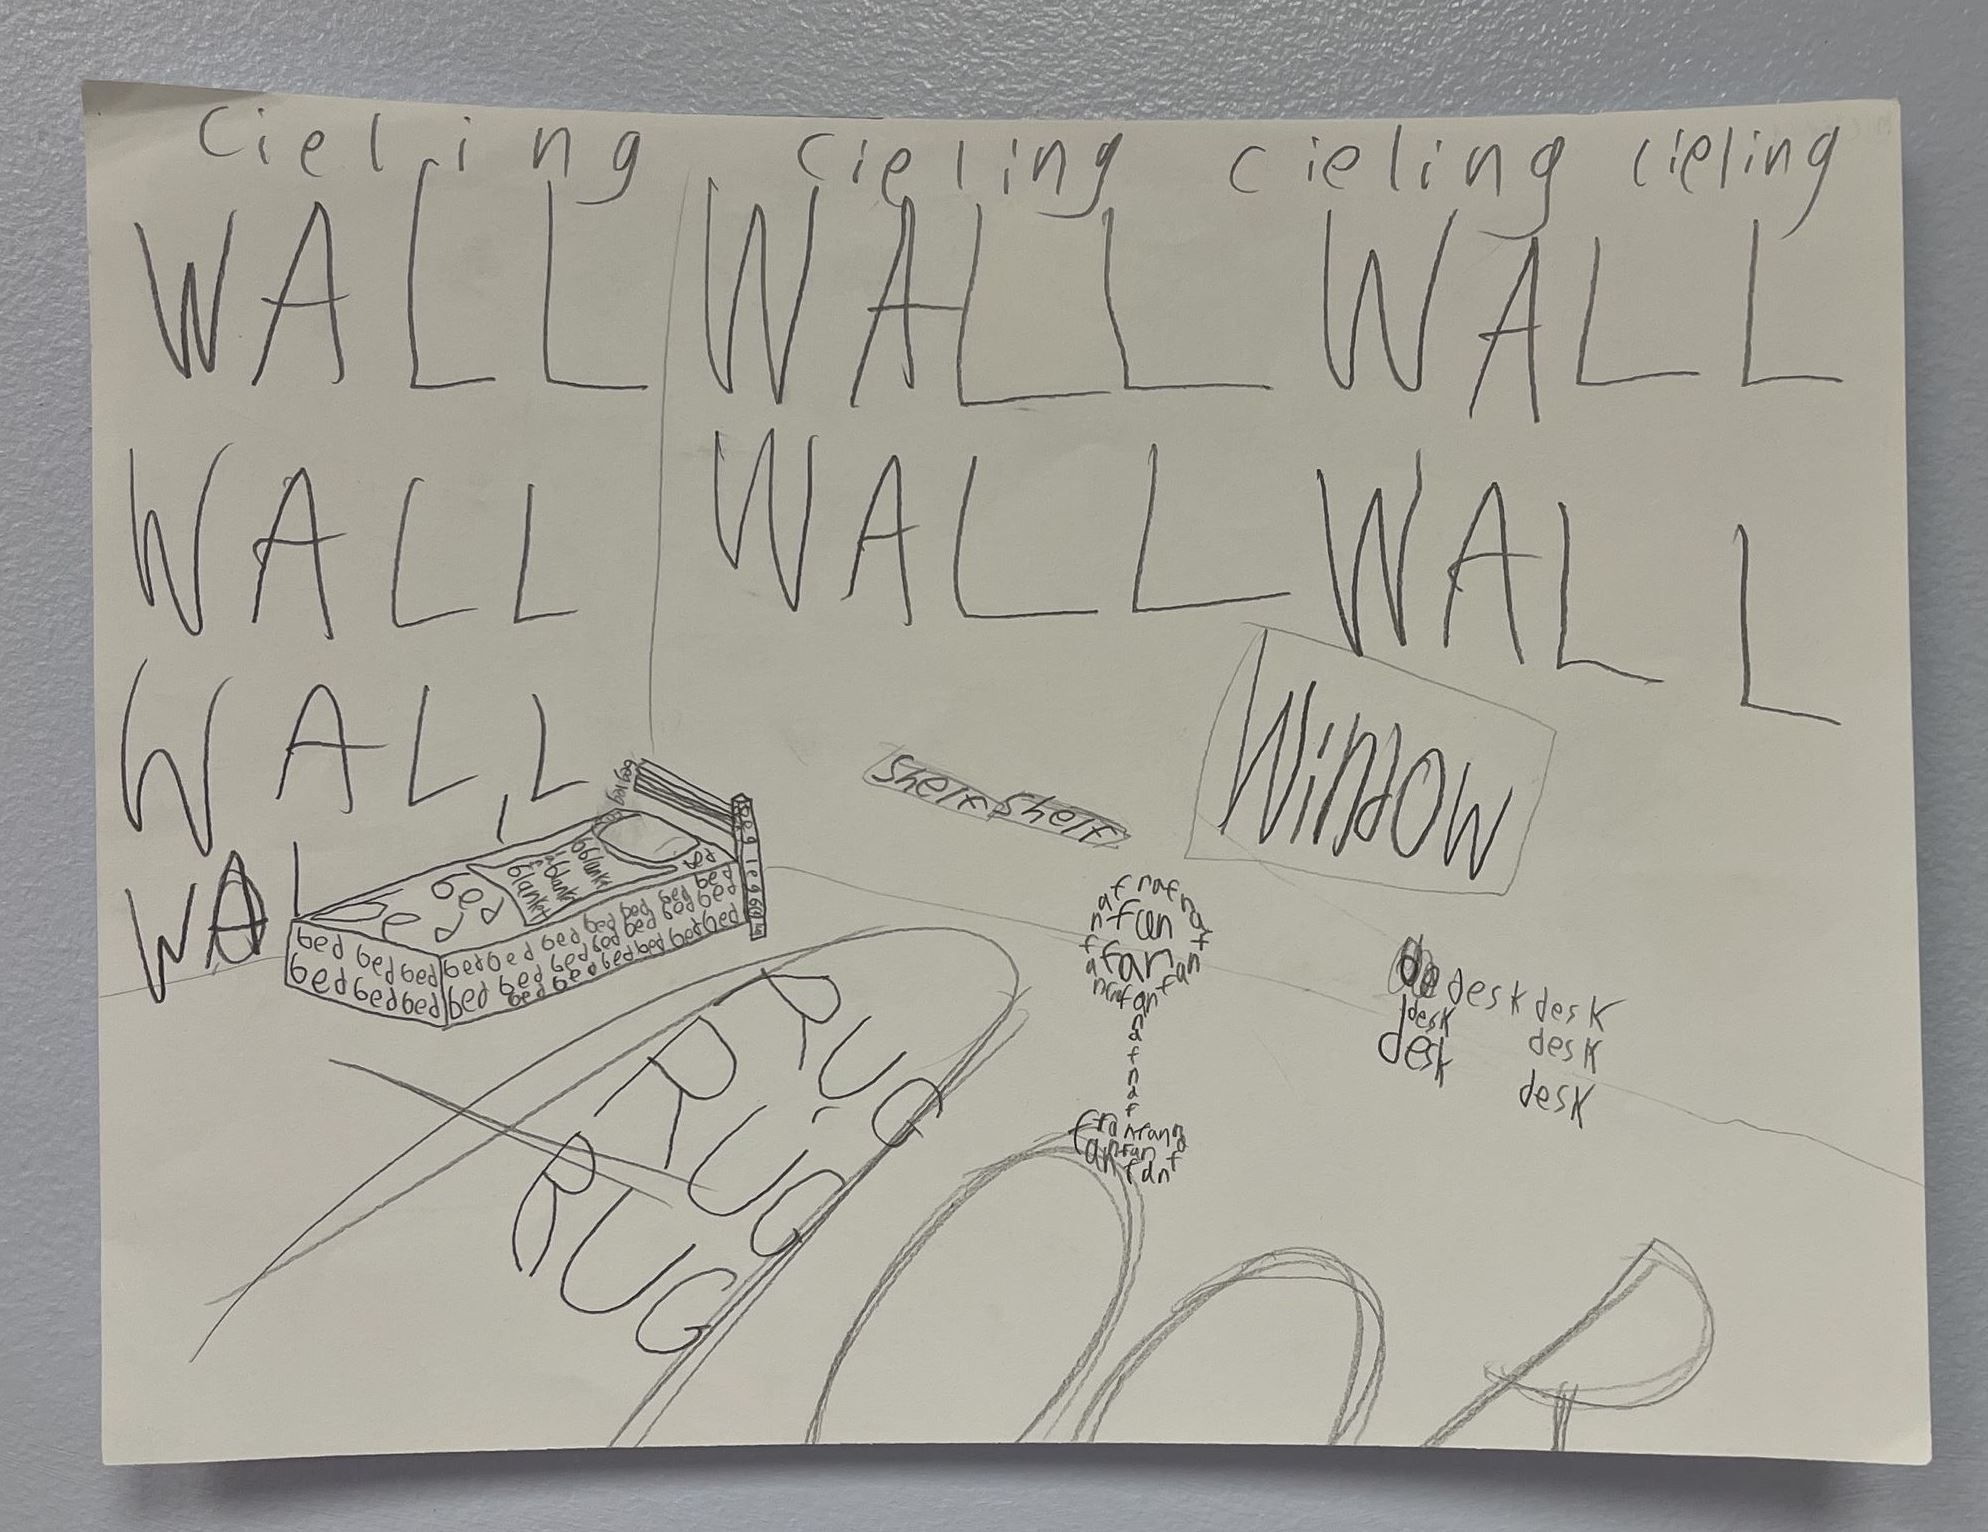 cieling cieling cieling cieling
WALL WALL WALL
WALL WALL WALL
WALL
WAL
Window
shelf shelf
bed
blanket
blanket
blanket
bed
bed bed bed bed bed bed bed bed bed bed
bed bed bed bed bed bed bed bed bed bed
leg leg
fan
fan
fan fan
desk desk
desk desk
desk desk
RUG
RUG
RUG
OOR